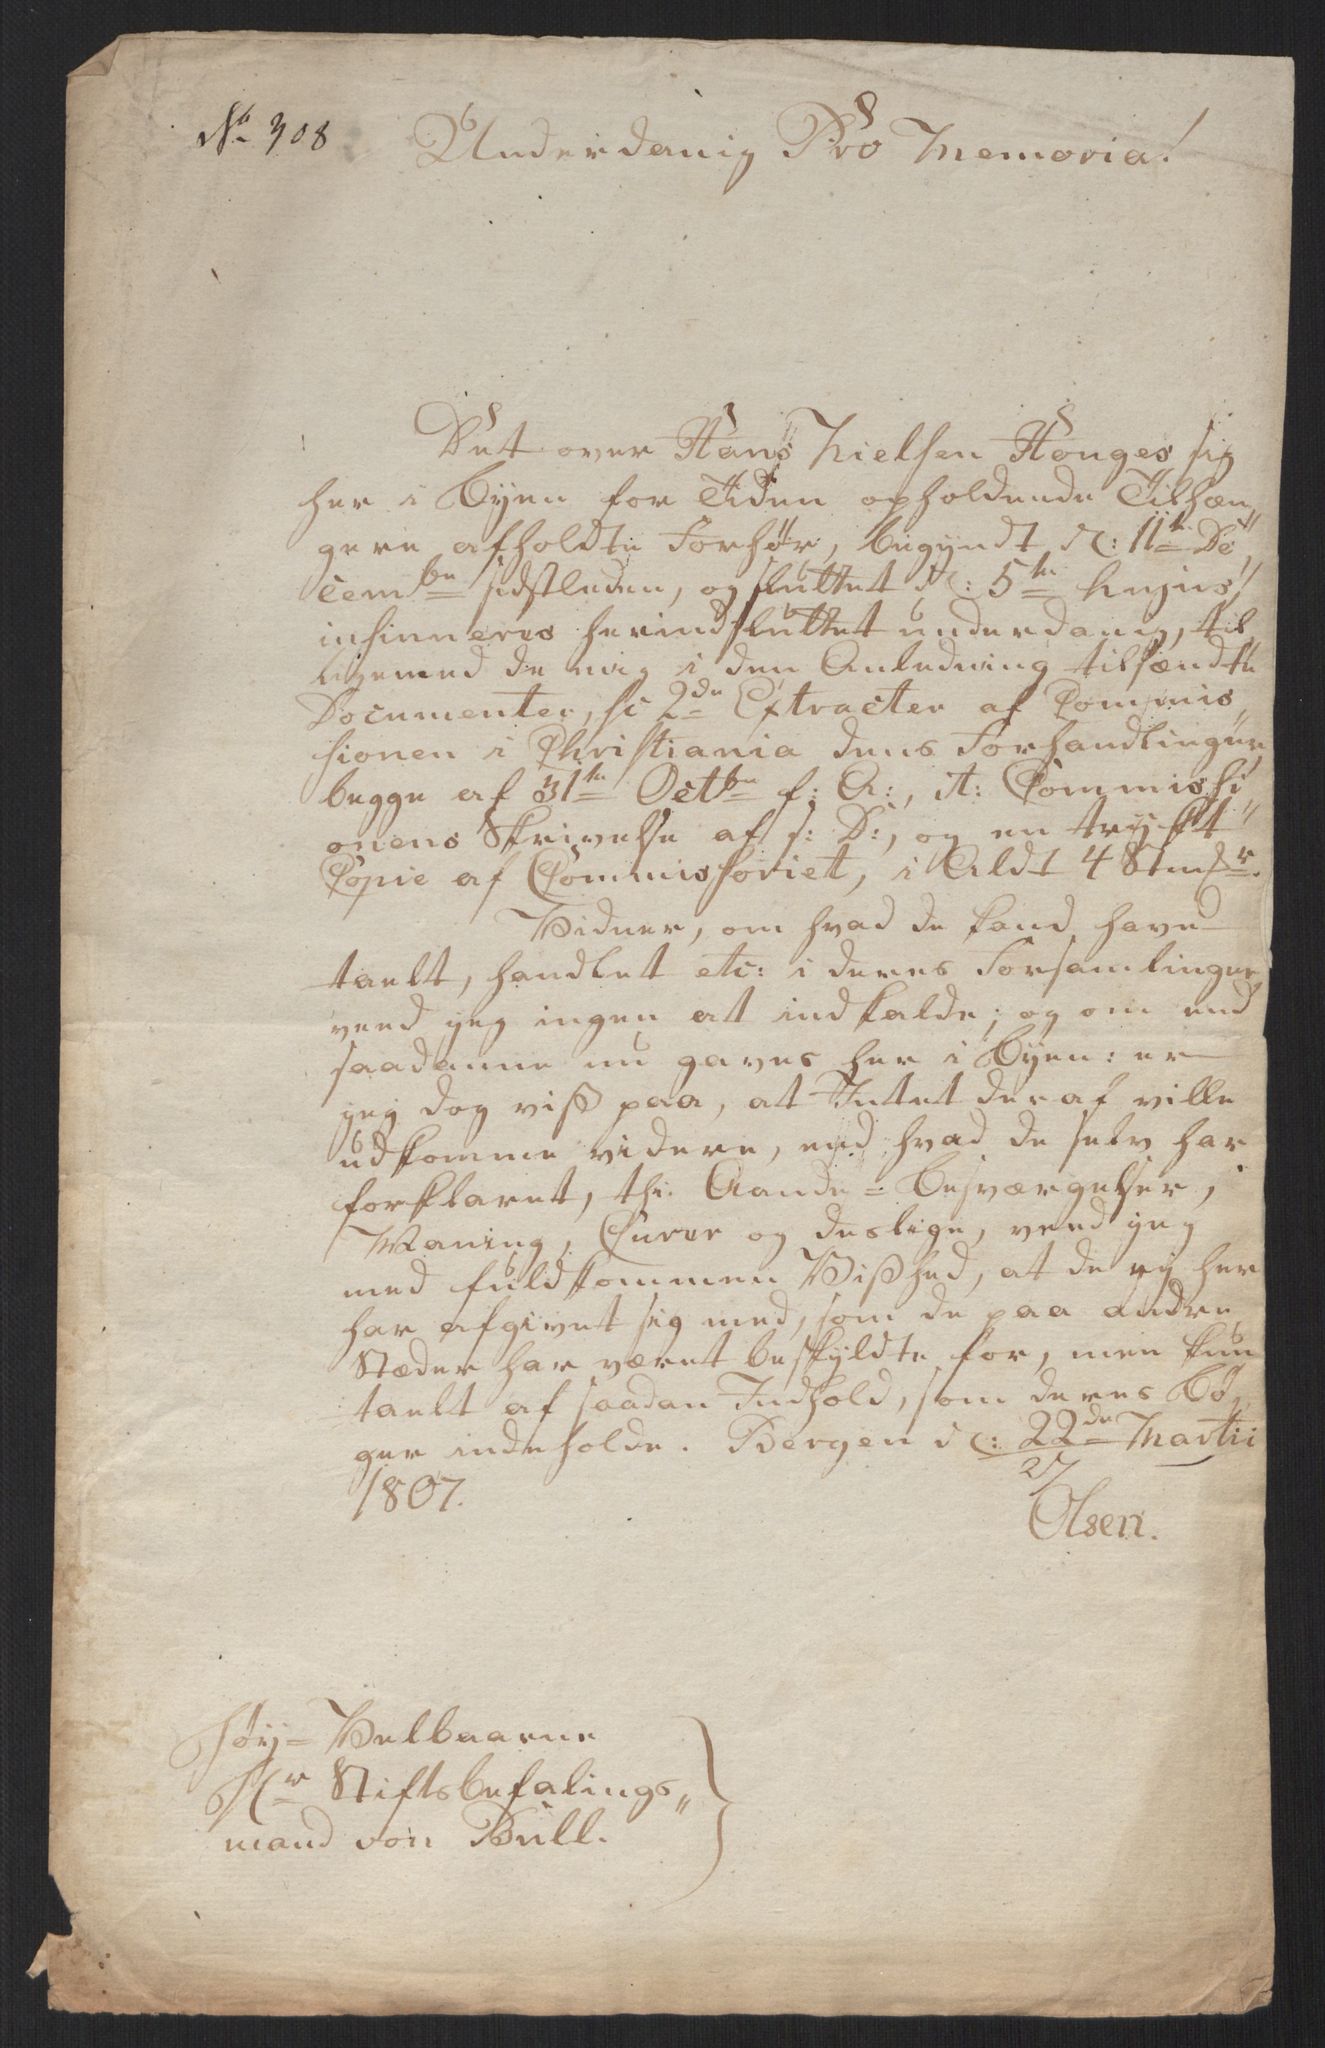 No 308
Underdanig Pro Memoria!
Det over Hans Nielsen Houges sig
her i Byen for Tiden opholdende Tilhæn„
gere afholdte Forhør, begyndt d: 11te De„
cembr sidstleden, og sluttet d: 5te hujus,
insinueres herindsluttet underdanig, til„
ligemed de mig i den Anledning tilsændte
Documenter, sc 2de Extracter af Commis„
sionen i Christiania dens Forhandlinger,
begge af 31te Octbr f: A:, it: Commissi„
onens Skrivelse af s: D:, og en trykt
Copie af Commissoriet, i Aldt 4 Stkr.
Vidner, om hvad de kand have
taelt, handlet etc: i deres Forsamlinger
veed jeg ingen at indkalde; og om end
saadanne nu gaves her i Byen: er
jeg dog viß paa, at Intet deraf ville
udkomme videre, end hvad de selv har
forklaret, thi Aande=besværgelser,
Maning, Curer og deslige, veed jeg
med fuldkommen Vißhed, at de ey her
har afgivet sig med, som de paa andre
Stæder har været beskyldte for, men kun
taelt af saadan Indhold, som deres Bø„
ger indeholde. Bergen d: 22de Martii
1807.
Olsen.
Høy=Velbaarne
Hr Stiftsbefalings„
mand von Bull.